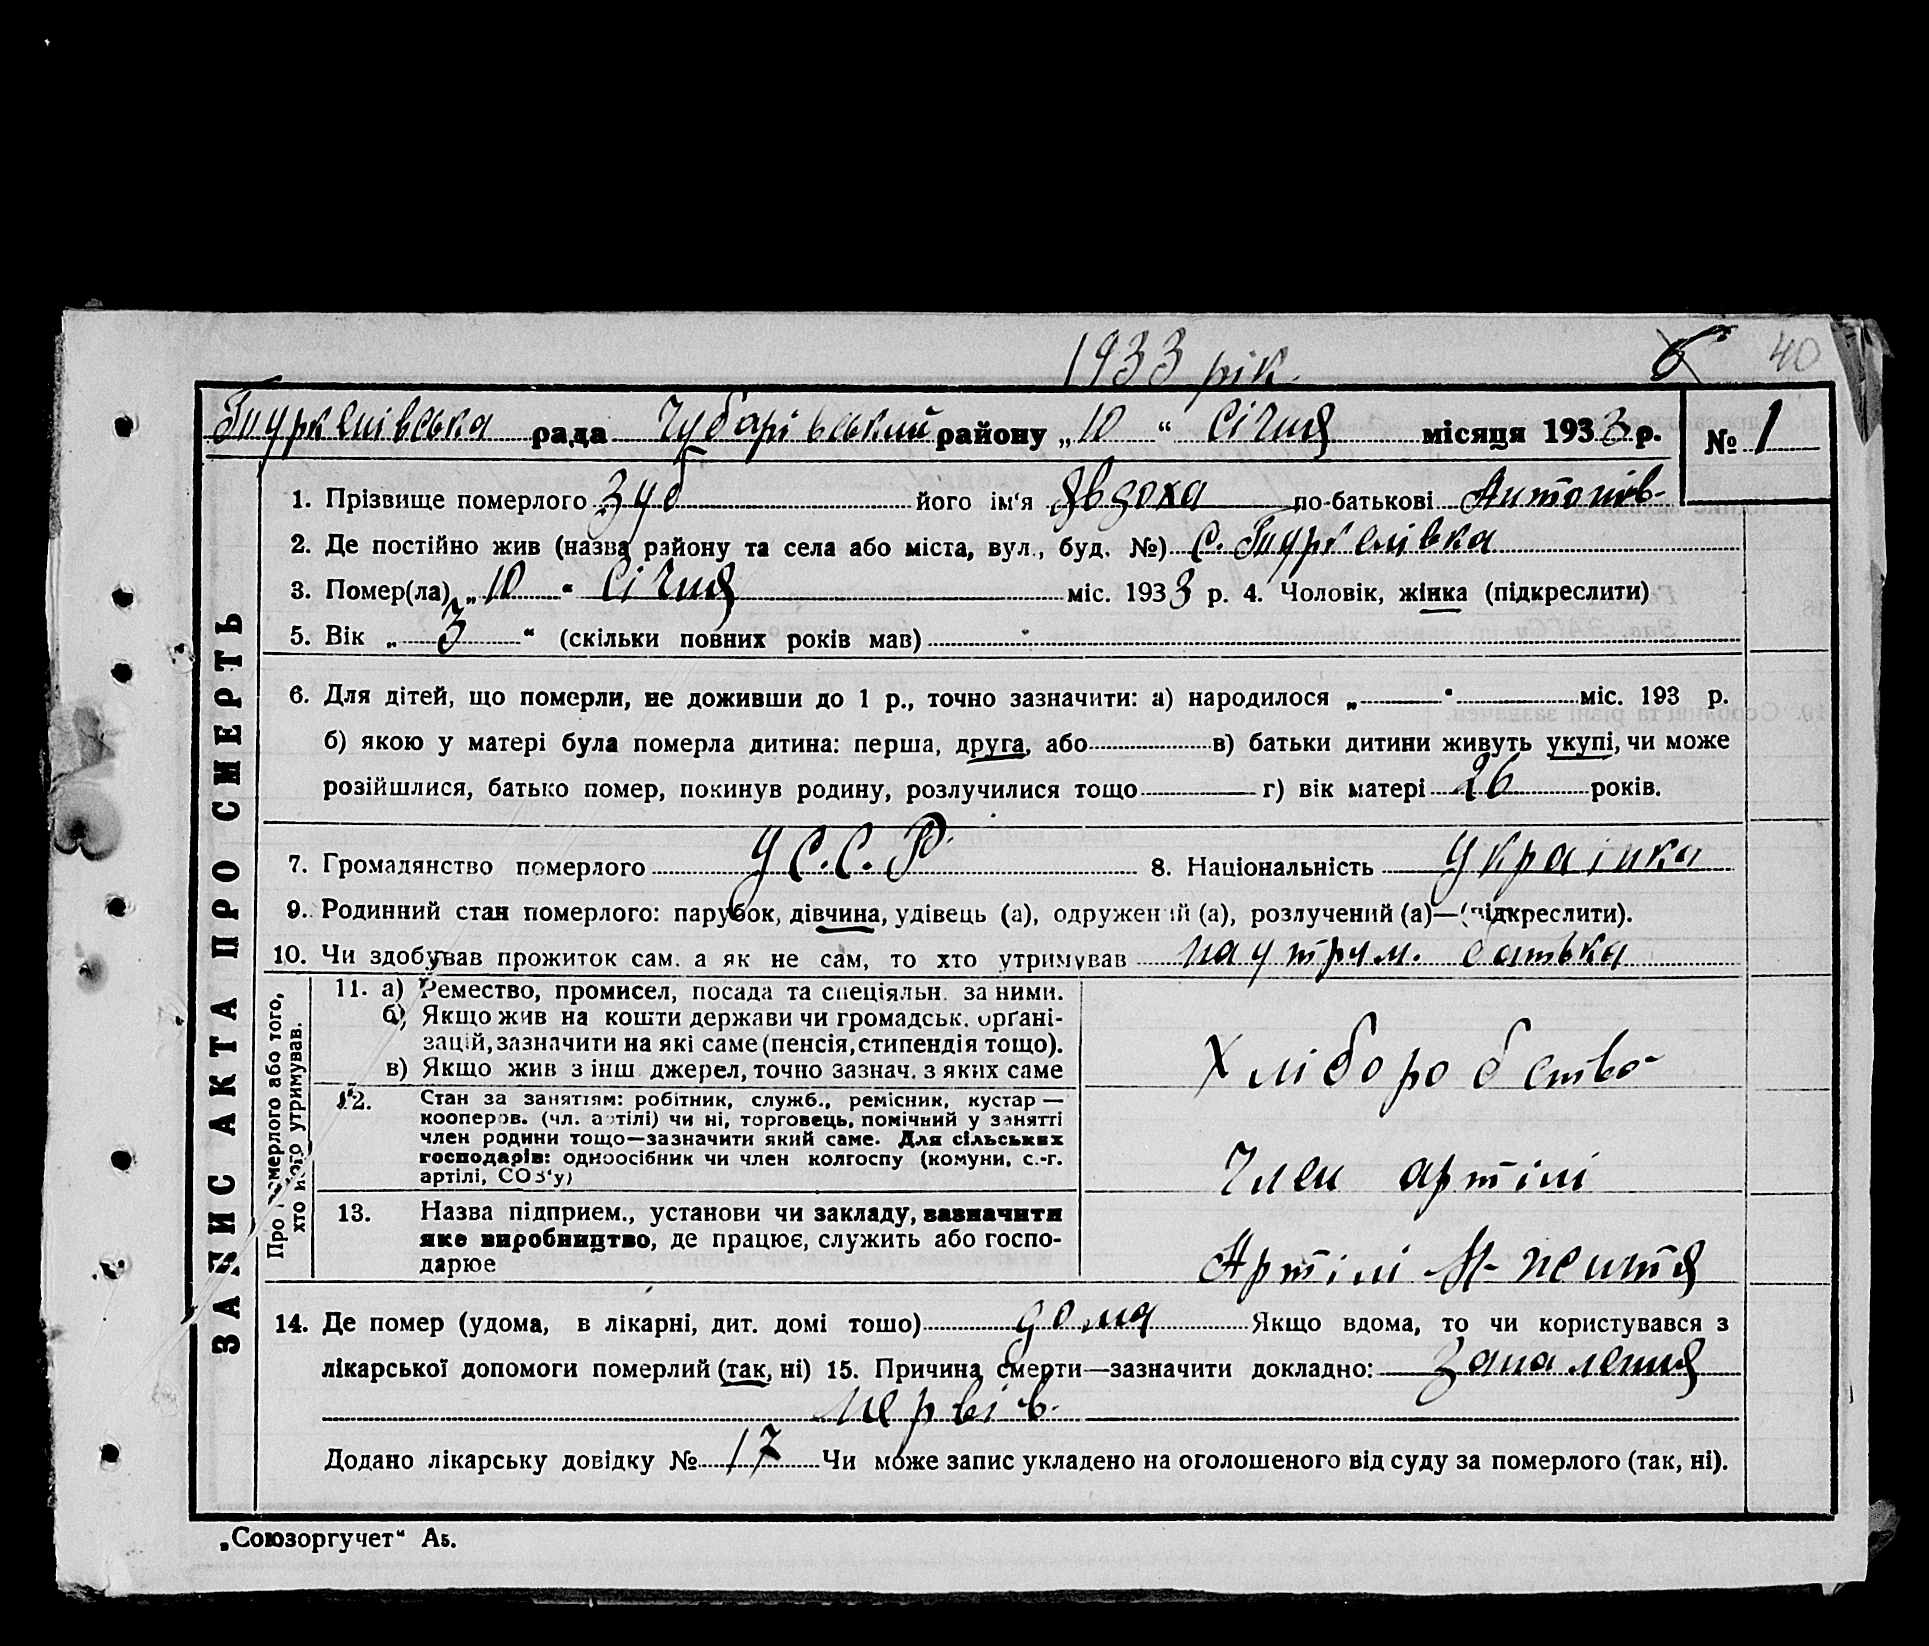 1933 рік.
б 40
Туркенівська рада Чубарівський району „10“ Січня місяця 1933 р. № 1
1. Прізвище померлого Зуб його ім‘я Явдоха по-батькові Антонів-
2. Де постійно жив (назва району та села або міста, вул., буд. №) с. Туркенівка
3. Помер(ла) „10“ Січня міс. 1933 р. 4. Чоловік, жінка (підкреслити)
5. Вік „3“ (скільки повних років мав)
6. Для дітей, що померли, не доживши до 1 р., точно зазначити: а) народилося „ “ міс. 193 р.
б) якою у матері була померла дитина: перша, друга, або в) батьки дитини живуть укупі, чи може
розійшлися, батько помер, покинув родину, розлучилися тощо г) вік матері 26 років.
7. Громадянство померлого У С. С. Р. 8. Національність Українка
9. Родинний стан померлого: парубок, дівчина, удівець (а), одружений (а), розлучений (а)—(підкреслити).
10. Чи здобував прожиток сам. а як не сам, то хто утримував на утрим. батька
ЗАПИС АКТА ПРО СМЕРТЬ
Про померлого або того,
хто його утримував.
11. а) Ремество, промисел, посада та спеціяльн. за ними.
б) Якщо жив на кошти держави чи громадськ. орґані-
зацій, зазначити на які саме (пенсія, стипендія тощо).
в) Якщо жив з інш джерел, точно зазнач. з яких саме
Хліборобство
12. Стан за заняттям: робітник, служб., ремісник, кустар —
кооперов. (чл. артілі) чи ні, торговець, помічний у занятті
член родини тощо—зазначити який саме. Для сільських
господарів: одноосібник чи член колгоспу (комуни, с.-г.
артілі, СОЗ‘у)
Член артілі
13. Назва підприем., установи чи закладу, зазначити
яке виробництво, де працює, служить або госпо-
дарює
Артілі
14. Де помер (удома, в лікарні, дит. домі тошо) дома Якщо вдома, то чи користувався з
лікарської допомоги померлий (так, ні) 15. Причина смерти—зазначити докладно: Запалення
нервів.
Додано лікарську довідку № 17 Чи може запис укладено на оголошеного від суду за померлого (так, ні).
„Союзоргучет“ А5.